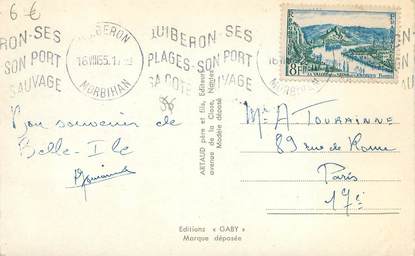 6 €
QUIBERON
16 VIII 55
MORBIHAN
RON-SES
SON PORT
SAUVAGE
QUIBERON-SES
PLAGES-SON PORT
SA COTE SAUVAGE
8F
LA VALLÉE DE LA SEINE AUX ANDELYS
POSTES
Bon souvenir de
Belle-Ile
ARTAUD père et fils, Editeurs
avenue de la Close, Nantes
Modèle déposé
Mr A Tourainne
89 rue de Rome
Paris
17e
Editions « GABY »
Marque déposée